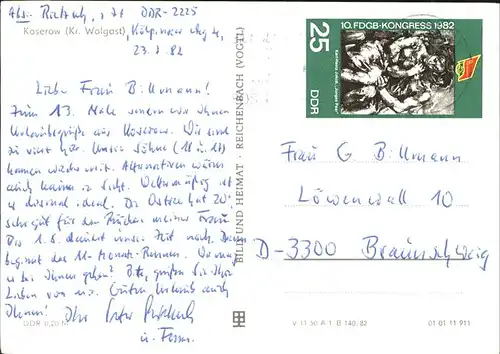 Abs. Rietsch, DDR-2225
Koserow (Kr. Wolgast),
23.7.82
Liebe Frau Billmann!
Zum 13. Male senden wir Ihnen
Urlaubsgrüße aus Koserow. Wir sind
zu viert hier. Unsere Söhne (18 u. 21)
kamen wieder mit. Alternativen waren
auch keine in Sicht. Wettermäßig ist
es diesmal ideal. Die Ostsee hat 20°
sehr gut für den Rücken meiner Frau
Bis 1.8. dauert unsere Zeit noch. Dann
beginnt das 11-Monate-Rennen. Wie
es bei Ihnen gehen? Bitte, grüßen Sie Ihre
Lieben von mir. Guten Urlaub auch
Ihnen! Ihr Peter
u. Fam.
DDR 0,20 M
BILD UND HEIMAT · REICHENBACH (VOGTL)
10. FDGB-KONGRESS 1982
25
DDR
Frau G Billmann
Löwenwall 10
D-3300 Braunschweig
V 11 50 A 1 B 140/82 01 01 11 911